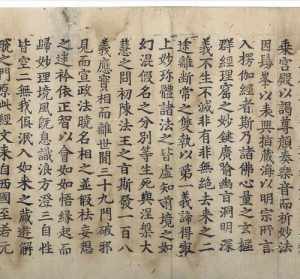 乘宮殿以謁尊顏奏樂音而祈妙法
因鬘峯以表興指藏海以明宗所言
入楞伽經者斯乃諸佛心量之玄樞
群經理窟之妙鍵廣喻幽旨洞明深
義不生不滅非有非無絕去來之二
途離斷常之雙執以第一義諦得最
上妙珎體諸法之皆虛知前境之如
幻混假名之分別等生死與涅槃大
慧之問初陳法王之旨斯發一百八
義應實相而離世間三十九門破邪
見而宣政法曉名相之並假祛妄想
之迷衿依正智以會如如悟緣起而
歸妙理境風既息識浪方澄三自性
皆空二無我俱泯入如來之藏遊解
脫之門原此經文來自西國至若元